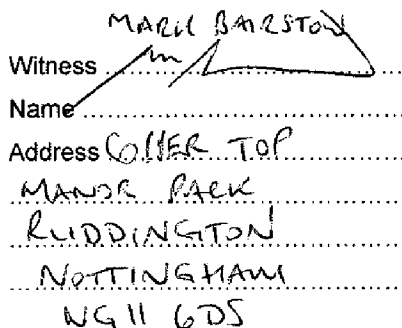 MARK BAIRSTOW
Witness
Name
Address COLLER TOP
MANOR PARK
RUDDINGTON
NOTTINGHAM
NG11 6DS